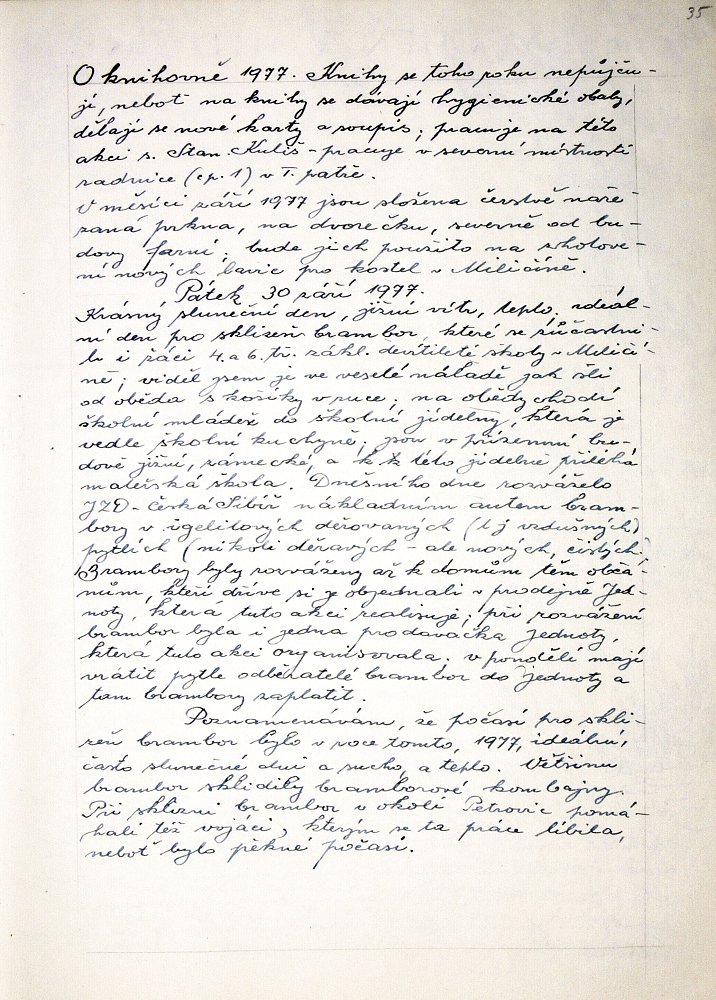 35
O knihovně 1977. Knihy se toho roku nepůjču-
jí, neboť na knihy se dávají hygienické obaly,
dělají se nové karty a soupis; pracuje na této
akci s. Stan. Kuliš - pracuje v severní místnosti
radnice (čp. 1) v I. patře.
V měsíci září 1977 jsou složena čerstvě naře-
zaná prkna, na dvorečku, severně od bu-
dovy farní; bude jich použito na zhotove-
ní nových lavic pro kostel v Miličíně.
Pátek 30 září 1977.
Krásný slunečný den, jižní vítr, teplo. ideál-
ní den pro sklizeň brambor, které se zúčastni-
li i žáci 4. a 6. tř. zákl. devítileté školy v Miličí-
ně; viděl jsem je ve veselé náladě jak šli
od oběda s košíky v ruce; na obědy chodí
školní mládež do školní jídelny, která je
vedle školní kuchyně; jsou v přízemní bu-
dově jižní, zámecké, a k této jídelně přiléhá
mateřská škola. Dnešního dne rozváželo
JZD - Česká Sibiř nákladním autem bram-
bory v igelitových děrovaných (t j vzdušných)
pytlích (nikoli děravých - ale nových, čistých.)
Brambory byly rozváženy až k domům těm obča-
nům, kteří dříve si je objednali v prodejně Jed-
noty, která tuto akci realisuje; při rozvážení
brambor byla i jedna prodavačka Jednoty,
která tuto akci organisovala. v pondělí mají
vrátit pytle odběratelé brambor do Jednoty a
tam brambory zaplatit.
Poznamenávám, že počasí pro skli-
zeň brambor bylo v roce tomto, 1977, ideální,
často slunečné dni a sucho, a teplo. Většinu
brambor sklidily bramborové kombajny.
Při sklizni brambor v okolí Petrovic pomá-
hali též vojáci, kterým se ta práce líbila,
neboť bylo pěkné počasí.